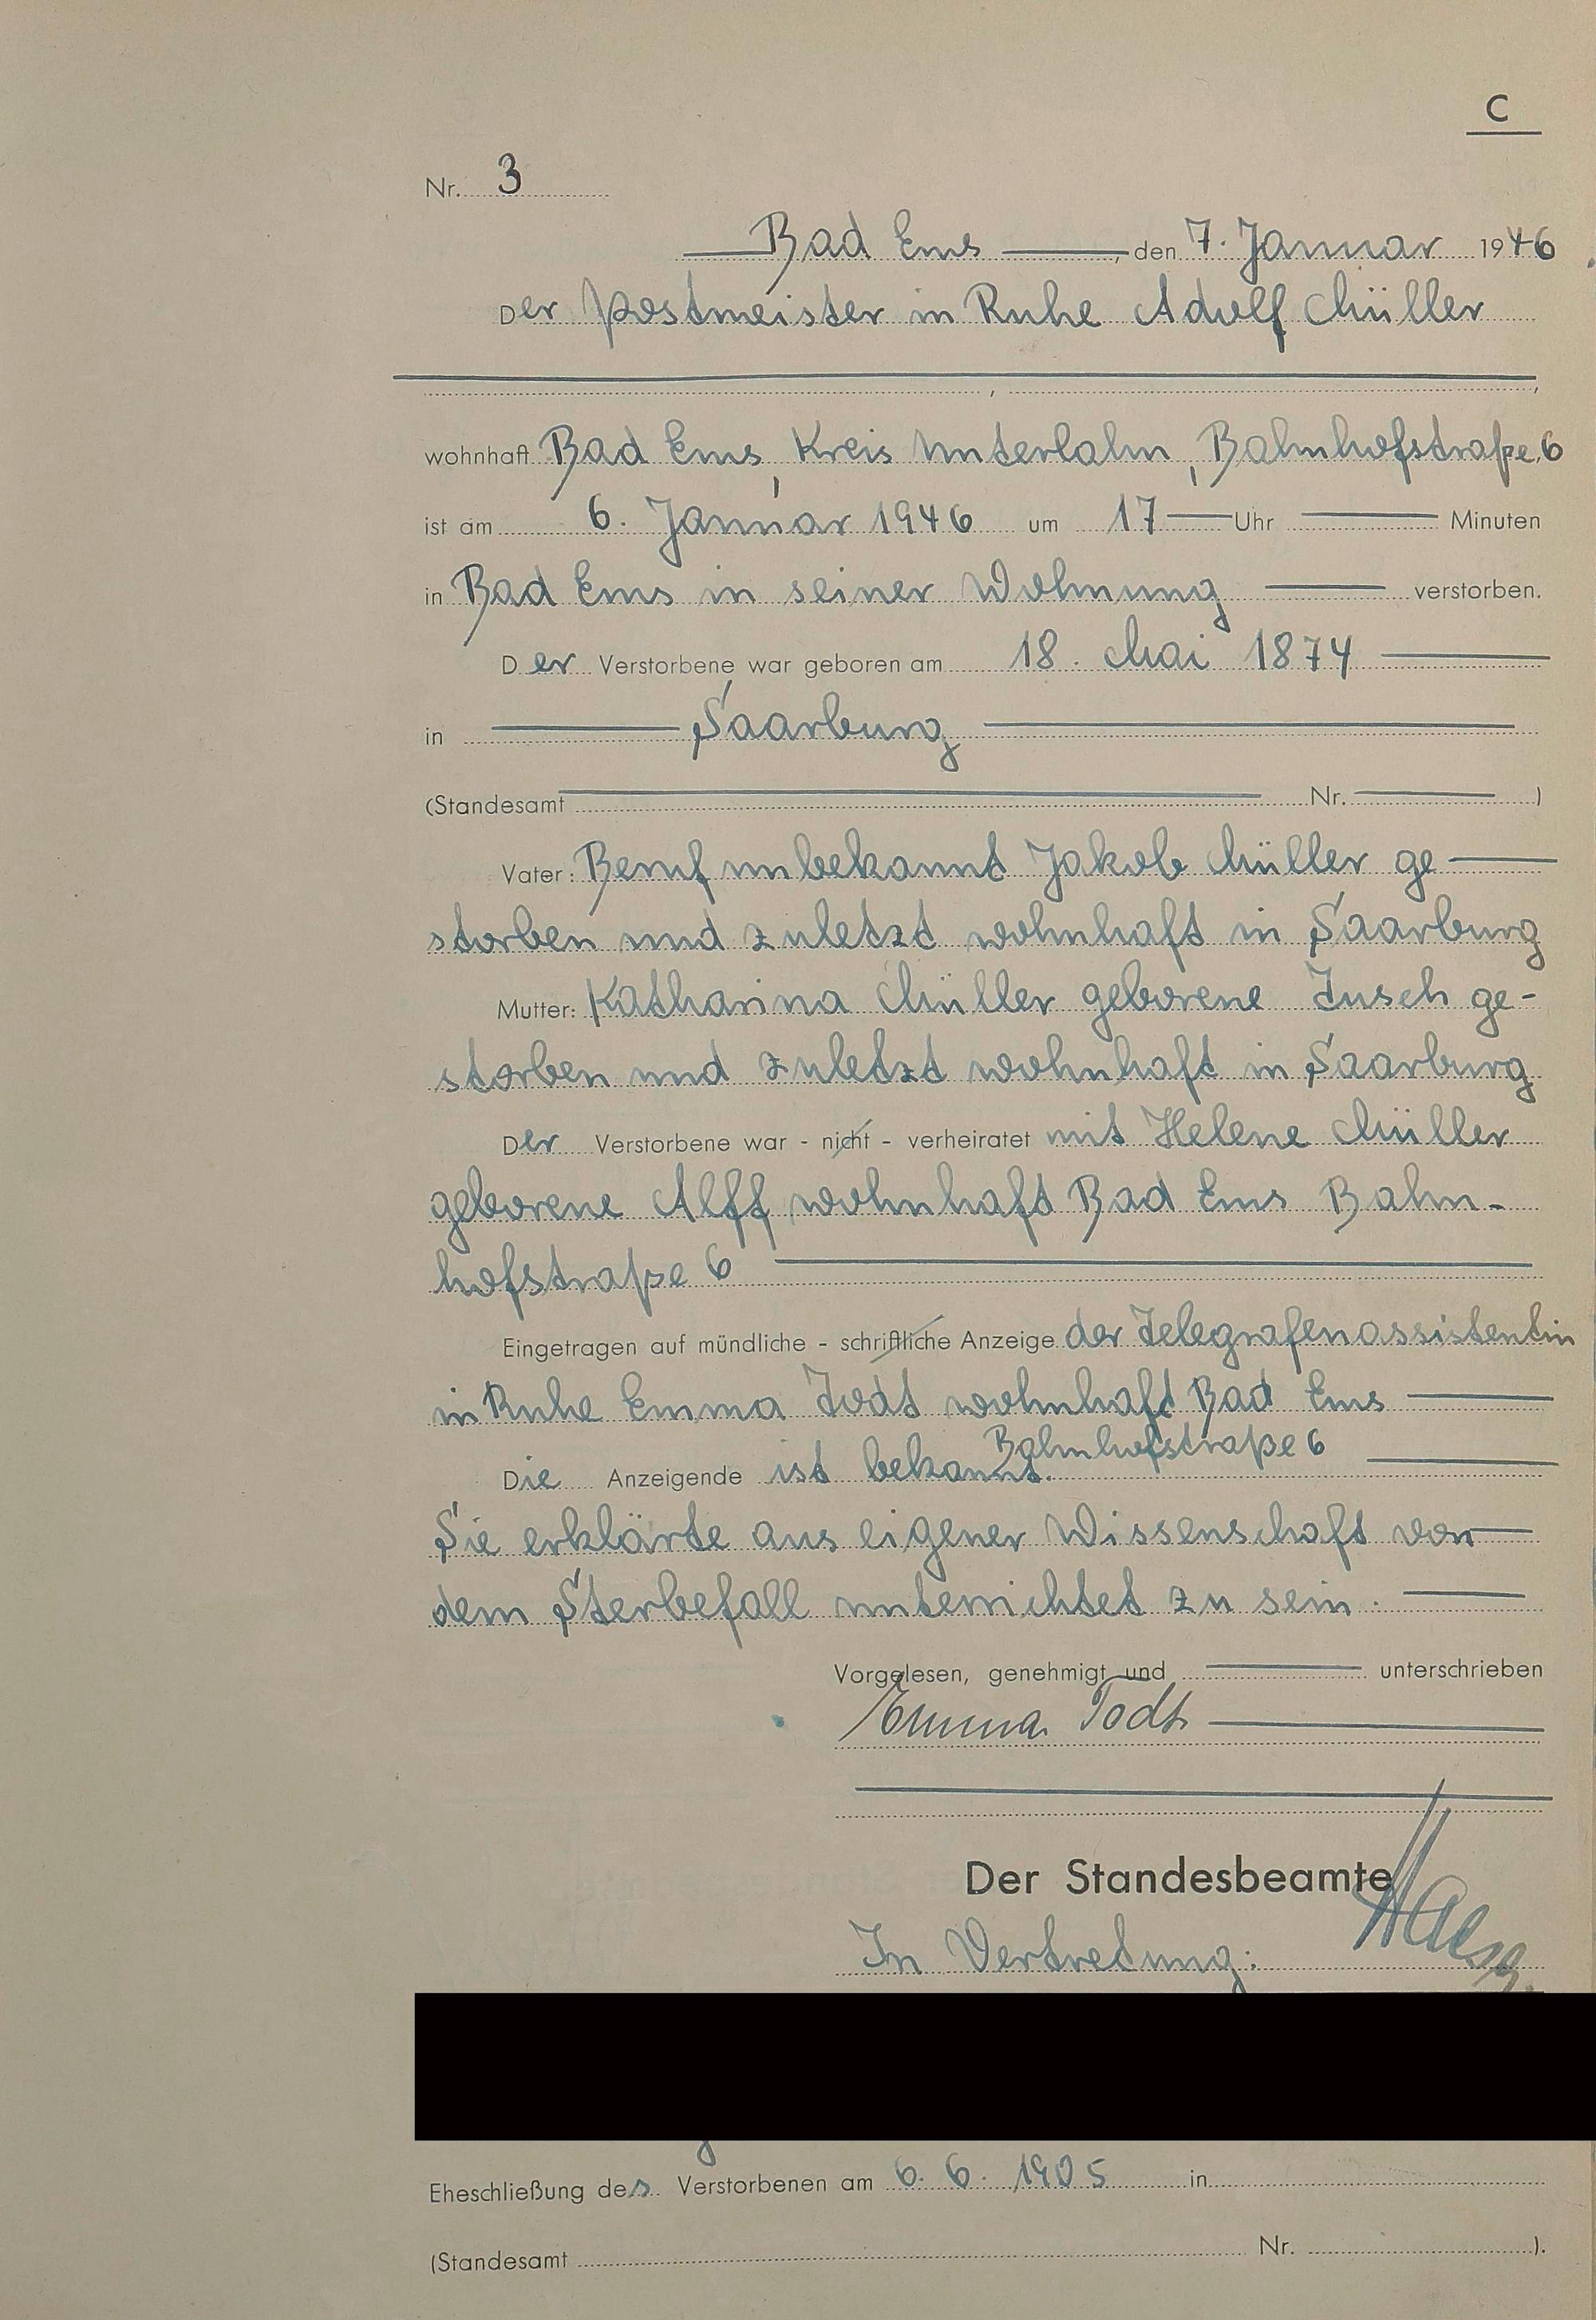 C
Nr. 3
Bad Ems, den 7. Januar 1946
Der Postmeister in Ruhe Adolf Müller
, ,
wohnhaft Bad Ems, Kreis Unterlahn, Bahnhofstraße 6
ist am 6. Januar 1946 um 17 Uhr Minuten
in Bad Ems in seiner Wohnung verstorben.
Der Verstorbene war geboren am 18. Mai 1874
in Saarburg
(Standesamt Nr. )
Vater: Beruf unbekannt Jakob Müller ge
storben und zuletzt wohnhaft in Saarburg
Mutter: Katharina Müller geborene Tusch ge-
storben und zuletzt wohnhaft in Saarburg
Der Verstorbene war - nicht - verheiratet mit Helene Müller
geborene Alff wohnhaft Bad Ems Bahn-
hofstraße 6
Eingetragen auf mündliche - schriftliche Anzeige der Telegrafenassistentin
in Ruhe Emma Todt wohnhaft Bad Ems
Bahnhofstraße 6
Die Anzeigende ist bekannt.
Sie erklärte aus eigener Wissenschaft von
dem Sterbefall unterrichtet zu sein.
Vorgelesen, genehmigt und unterschrieben
Emma Todt
Der Standesbeamte
In Vertretung:
Eheschließung des Verstorbenen am 6. 6. 1905 in
(Standesamt Nr. ).